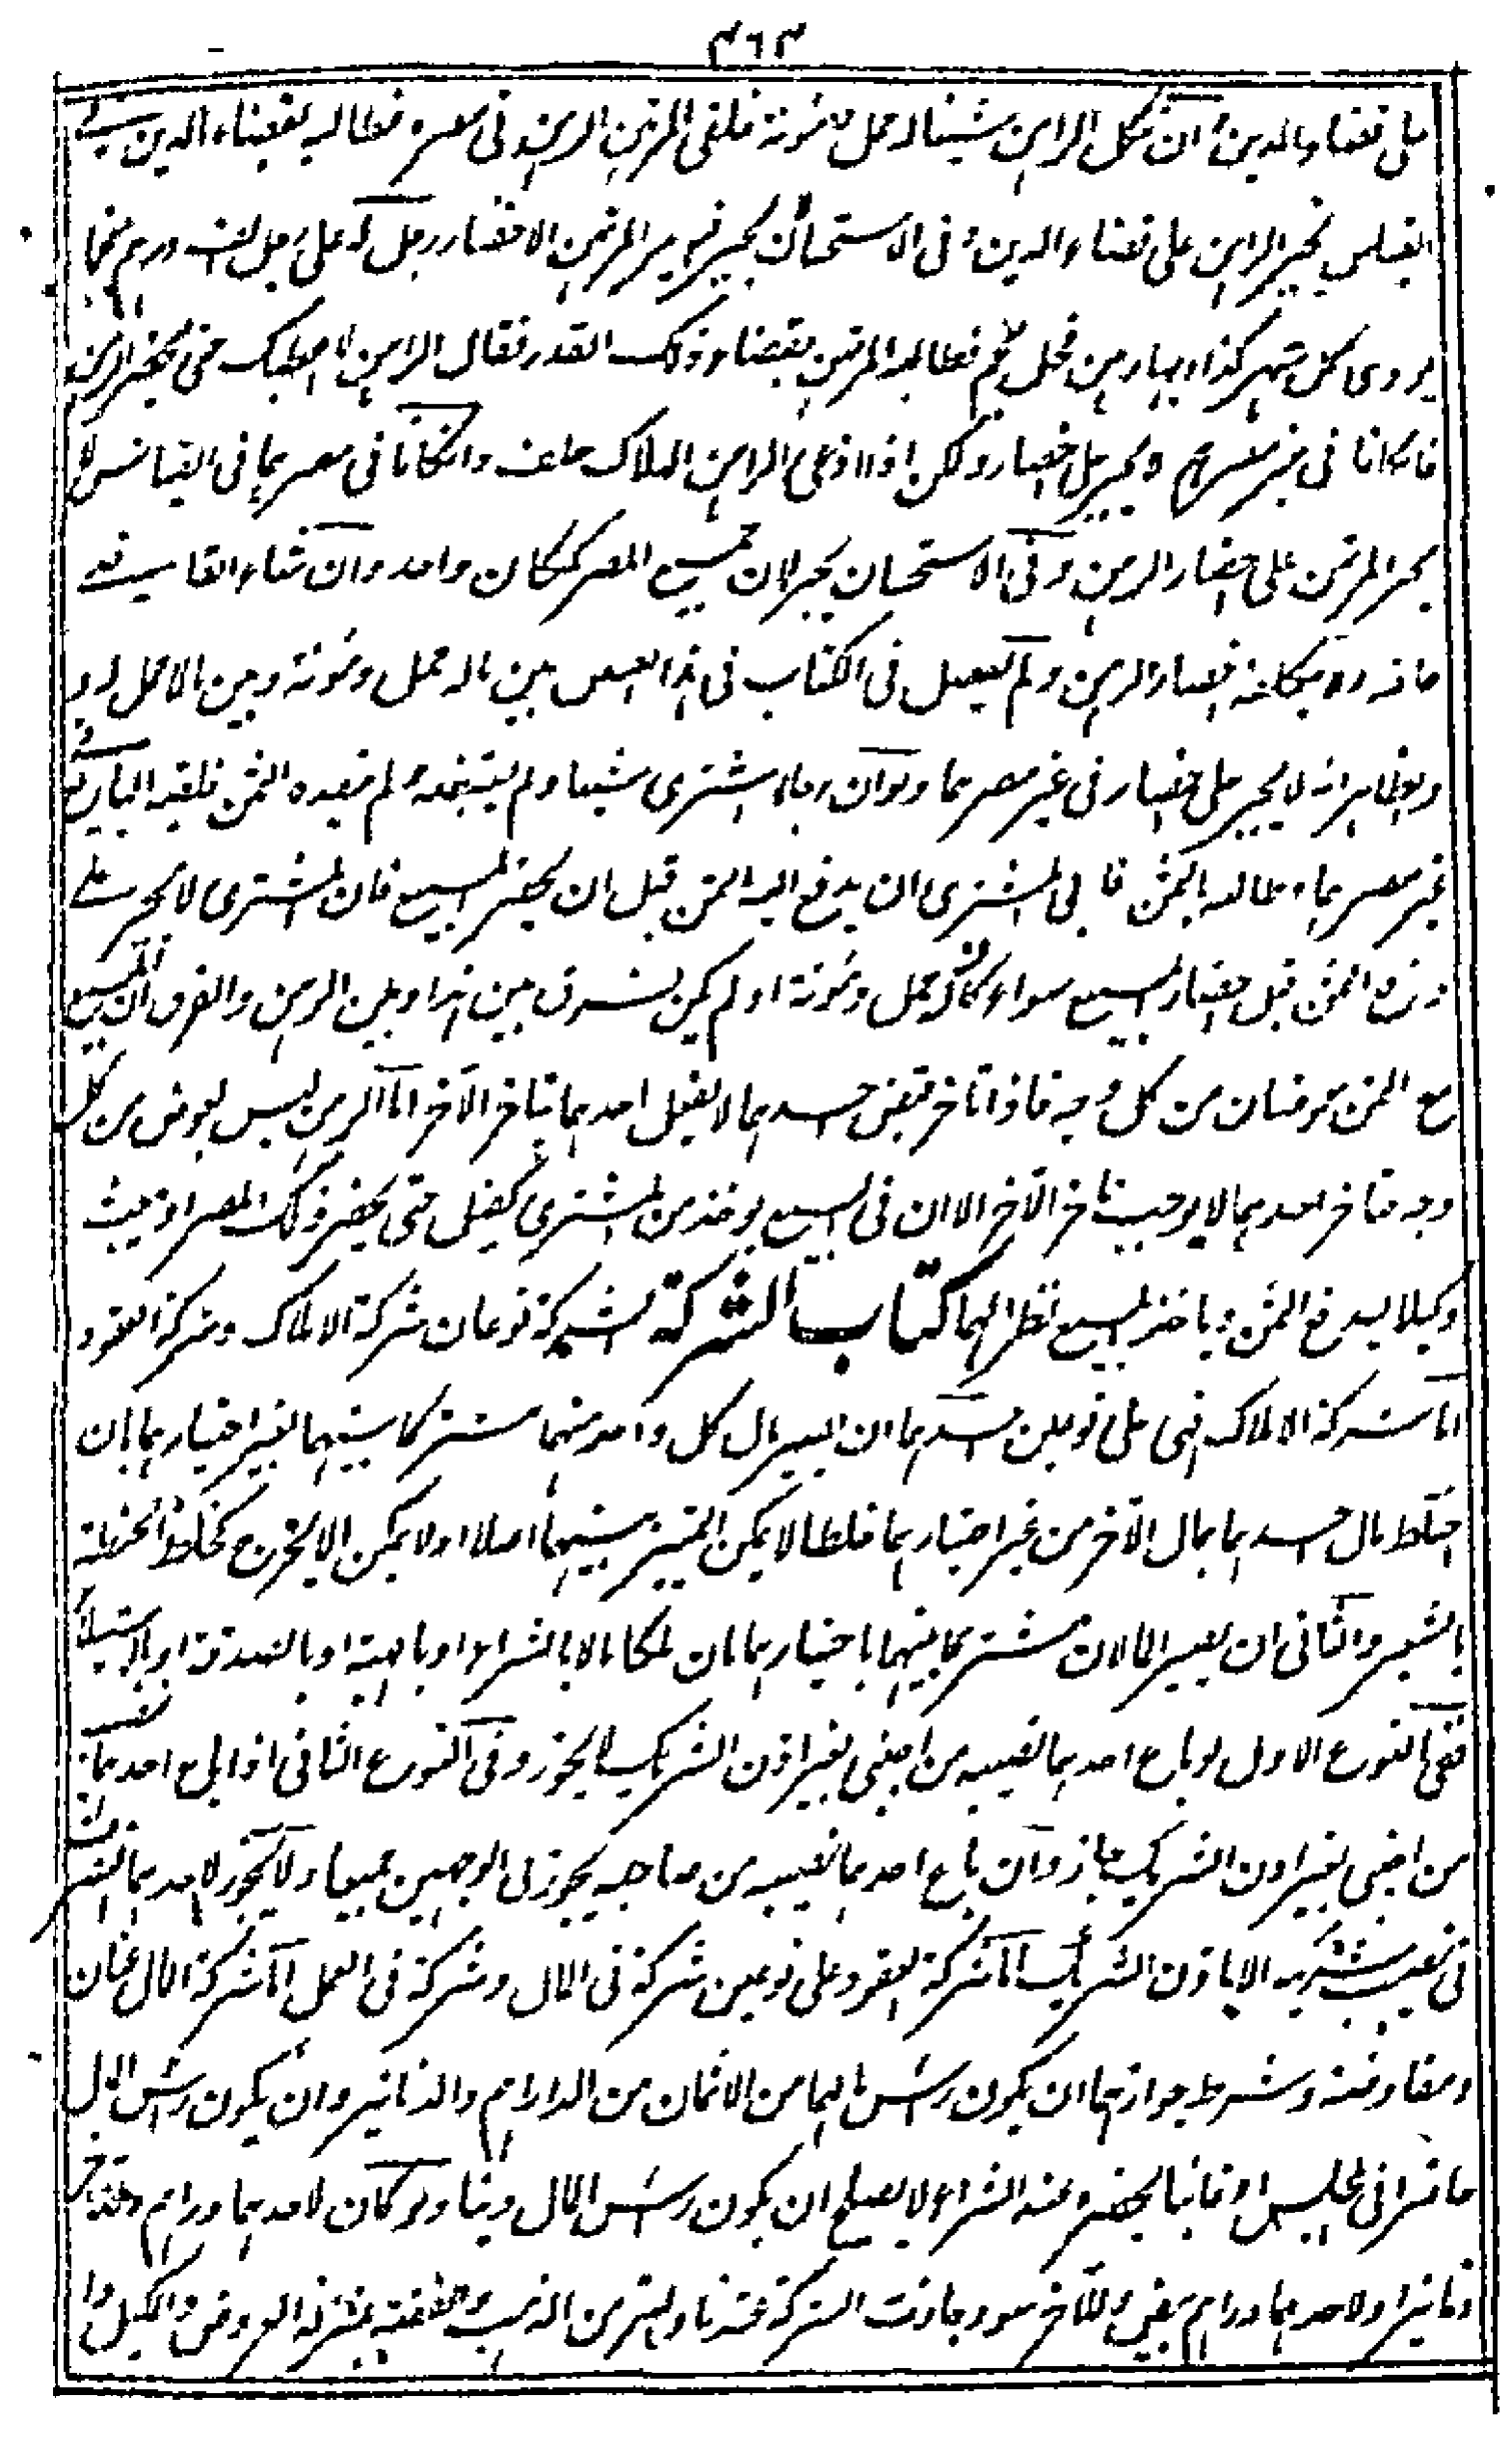 ٤٦٣
على قضاء الدين وان كان الراهن شيئا له حمل ومؤنة فلقى المرتهن الراهن فى مصره فطالبه بقضاء الدين
القياس يجبر الراهن على قضاء الدين وفى الاستحسان يجبر المرتهن الاحضار رجل له على رجل الف درهم
يودى كل شهر كذا وبها رهن فحل نجم فطالبه المرتهن بقضاء ذلك القدر فقال الراهن لا اعطيك حتى يحضر الرهن
فان كانا فى غير مصرهما لا يجبر على احضاره ولكن اذا ادعى الراهن الهلاك حلف وان كانا فى مصرهما فى القياس لا
يجبر المرتهن على احضار الرهن وفى الاستحسان يجبر لان جميع المصر كمكان واحد وان شاء القاضى
احضار الرهن ولم يفصل فى الكتاب فى هذا الفصل بين ما له حمل ومؤنة وبين ما لا حمل له
والظاهر انه لا يجبر على احضاره فى غير مصرهما ولو ان رجلا اشترى شيئا ولم يقبضه ولم ينقده الثمن فلقيه البايع فى
غير مصرهما وطالبه بالثمن فابى المشترى ان يدفع اليه الثمن قبل ان يحضر المبيع فان المشترى لا يجبر على
الثمن قبل احضار المبيع سواء كان له حمل ومؤنة او لم يكن فرق بين هذا وبين الرهن والفرق ان المبيع
مع الثمن عوضان من كل وجه فاذا تاخر قبض احدهما لا يفصل احدهما بتاخر الآخر اما الرهن ليس بعوض من كل
وجه فتاخر احدهما لا يوجب تاخر الآخر الا ان فى البيع يوخذ من المشترى كفيل حتى يحضر ذلك المصر او يبعث
وكيلا ليدفع الثمن وياخذ المبيع نظرا لهما كتاب الشركة الشركة نوعان شركة الاملاك وشركة العقود
اما شركة الاملاك فهى على نوعين احدهما ان يصير مال كل واحد منهما مشتركا بينهما بغير اختيارهما بان
اختلط مال احدهما بمال الآخر من غير اختيارهما خلطا لا يمكن التمييز بينهما اصلا او لا يمكن الا بحرج كخلط الحنطة
بالشعير والثانى ان يصير المالان مشتركا بينهما باختيارهما بان ملكا مالا بالشراء او بالهبة او بالصدقة او بالاستيلاء
ففى النوع الاول لو باع احدهما نصيبه من اجنبى بغير اذن الشريك لا يجوز وفى النوع الثانى اذا باع احدهما نصيبه
من اجنبى بغير اذن الشريك جاز وان باع احدهما نصيبه من صاحبه يجوز فى الوجهين جميعا ولا يجوز لاحدهما التصرف
فى نصيب شريكه الا باذن الشريك اما شركة العقود على نوعين شركة فى المال وشركة فى العمل اما شركة المال عنان
ومفاوضة وشرط جوازهما ان يكون رأس مالهما من الاثمان من الدراهم والدنانير وان يكون رأس المال
حاضرا فى المجلس او غائبا يحضره عند الشراء ولا يصلح ان يكون رأس المال دينا ولو كان لاحدهما دراهم وللآخر
دنانير او لاحدهما دراهم بيض وللآخر سود جازت الشركة عندنا والتبر من الذهب والفضة بمنزلة العروض والكيل و